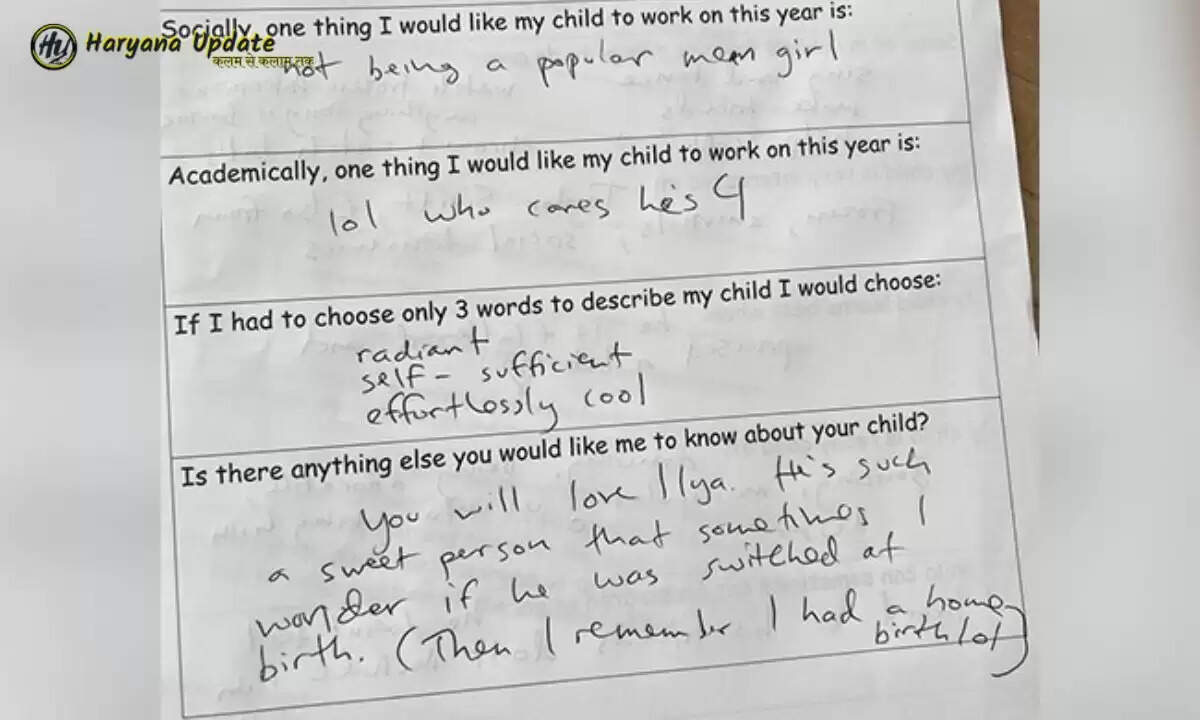 Socially, one thing I would like my child to work on this year is:
Haryana Update
कलम से कलाम तक
not being a popular mean girl
Academically, one thing I would like my child to work on this year is:
lol who cares he's 4
If I had to choose only 3 words to describe my child I would choose:
radiant
self-sufficient
effortlessly cool
Is there anything else you would like me to know about your child?
You will love Ilya. He's such
a sweet person that sometimes I
wonder if he was switched at
birth. (Then I remember I had a home
birth lol)